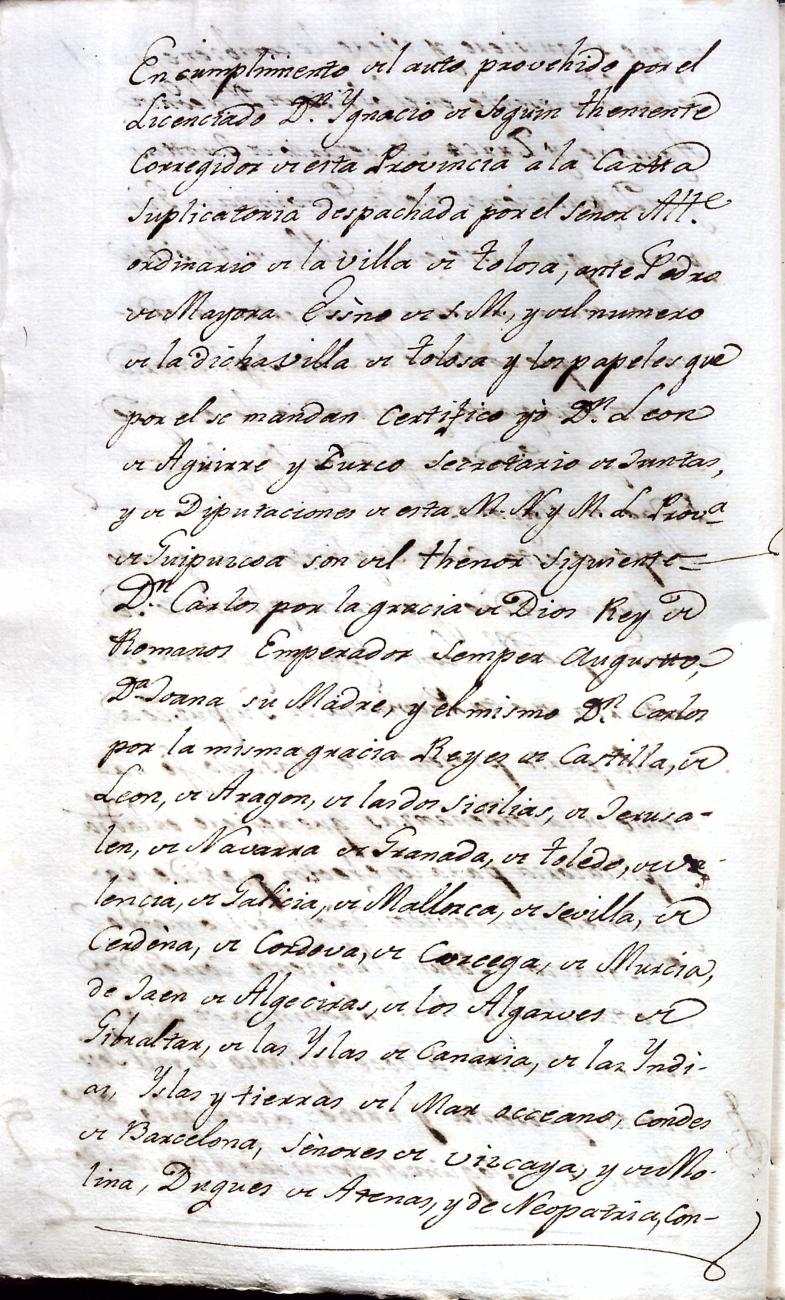 En cumplimiento del auto provehido por el
Licenciado D.n Ygnacio de Seguin theniente
Corregidor de esta Provincia a la Cartta
Suplicatoria despachada por el señor Alt.e
ordinario de la villa de tolosa, ante Pedro
de Mayora Essno de S. M, y del numero
de la dicha villa de tolosa y los papeles que
por el se mandan Certifico yo D.n Leon
de Aguirre y Zurco Secretario de Juntas,
y de Diputaciones de esta M. N. y M. L. Prov.a
de Guipuzcoa son del thenor siguiente=
D.n Carlos por la gracia de Dios Rey de
Romanos Emperador Semper Augustto,
D.a Joana su Madre, y el mismo D.n Carlos
por la misma gracia Reyes de Castilla, de
Leon, de Aragon, de las dos Sicilias, de Jerusa-
len, de Navarra de Granada, de toledo, de va-
lencia, de Galicia, de Mallorca, de Sevilla, de
Cerdeña, de Cordova, de Corcega, de Murcia,
de Jaen de Algeciras, de los Algarves de
Gibraltar, de las Yslas de Canaria, de las Yndi-
as, Yslas y tierras del Mar occeano, Condes
de Barcelona, señores de vizcaya, y de Mo-
lina, Duques de Atenas, y de Neopatria, Con-